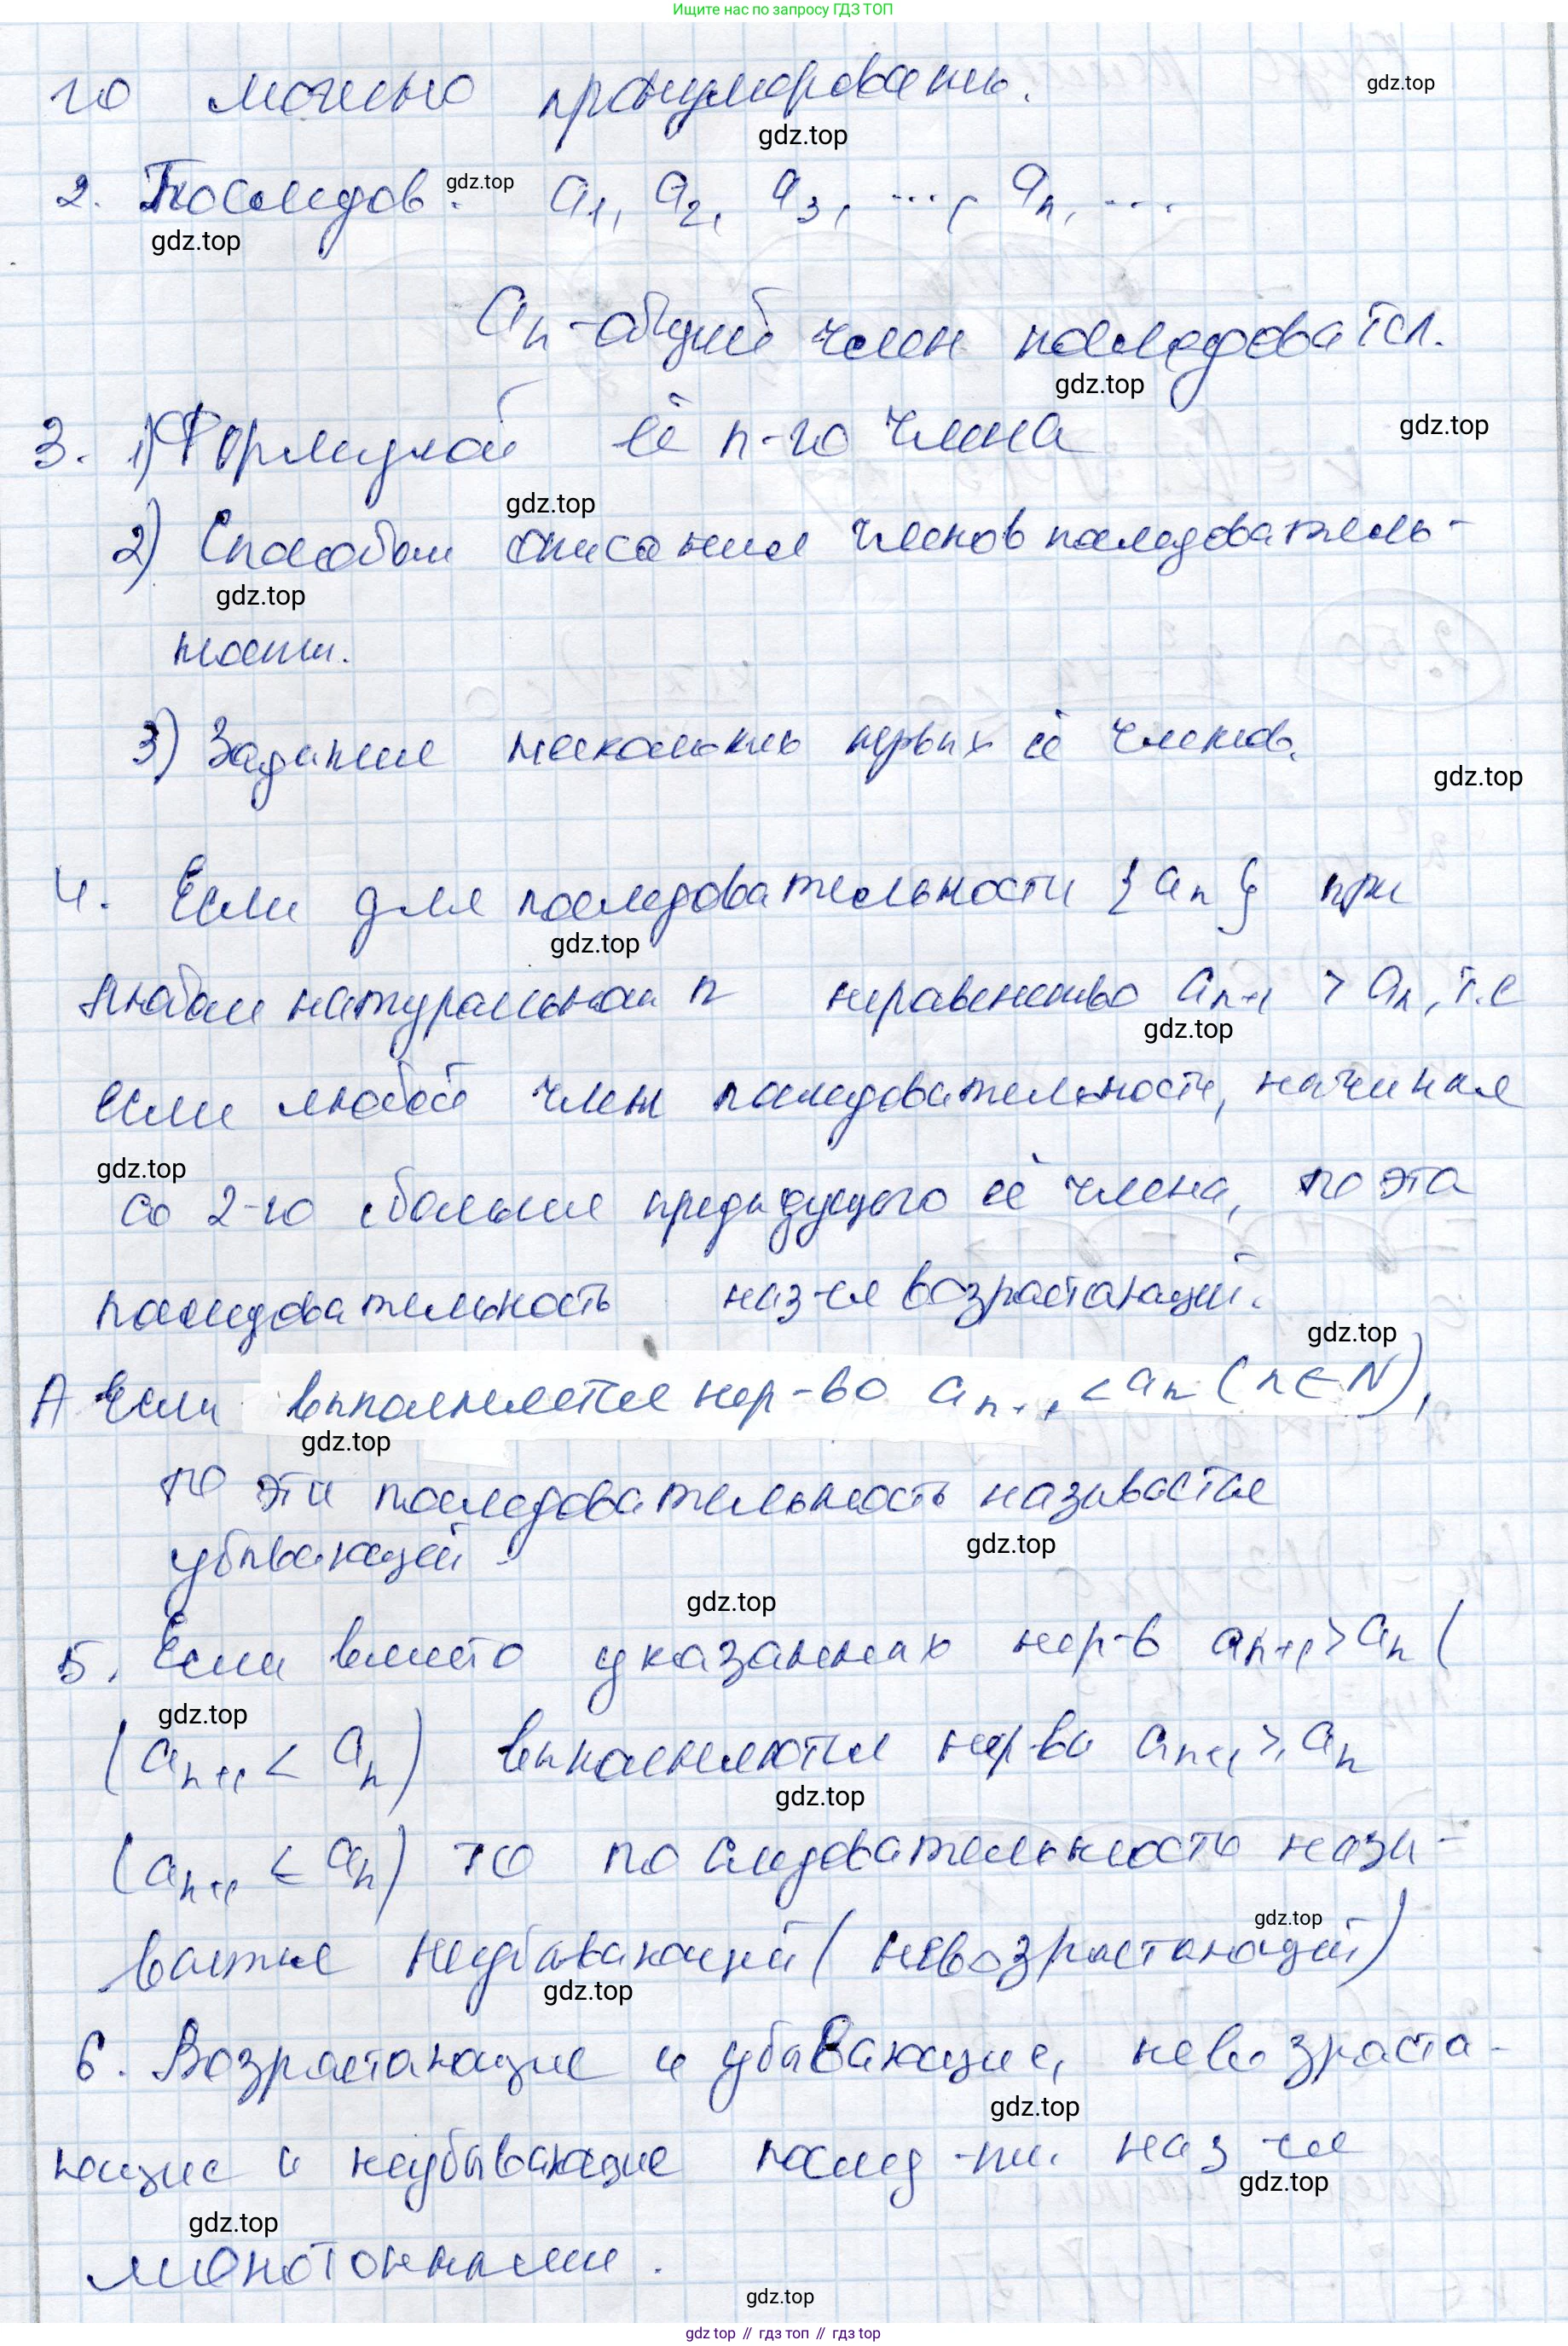 Ищите нас по запросу ГДЗ ТОП
то можно пронумеровать.
gdz.top
gdz.top
2. Последов. a₁, a₂, a₃, ..., aₙ, ...
gdz.top
gdz.top
aₙ - общий член последоватсл.
gdz.top
3. 1) Формулой её n-го члена
gdz.top
gdz.top
2) Способом описания членов последователь-
gdz.top
ности.
3) Задание нескольких первых её членов.
gdz.top
4. Если для последовательности {aₙ} при
gdz.top
любом натуральном n неравенство aₙ₊₁ > aₙ, т.е
gdz.top
если любой член последовательности, начиная
gdz.top
со 2-го больше предыдущего её члена, то эта
последовательность наз-ся возрастающей.
gdz.top
А Если выполняется нер-во aₙ₊₁ < aₙ (n ∈ N),
gdz.top
то эта последовательность называется
gdz.top
убывающей.
gdz.top
5. Если вместо указанных нер-в aₙ₊₁ > aₙ (
gdz.top
(aₙ₊₁ < aₙ) выполняются нер-ва aₙ₊₁ ⩾ aₙ
gdz.top
(aₙ₊₁ ⩽ aₙ) то последовательность назы-
gdz.top
вается неубывающей (невозрастающей)
gdz.top
6. Возрастающие и убывающие, невозраста-
gdz.top
ющие и неубывающие послед-ти. наз-ся
gdz.top
gdz.top
монотонными.
gdz.top
gdz top // гдз топ // гдз top